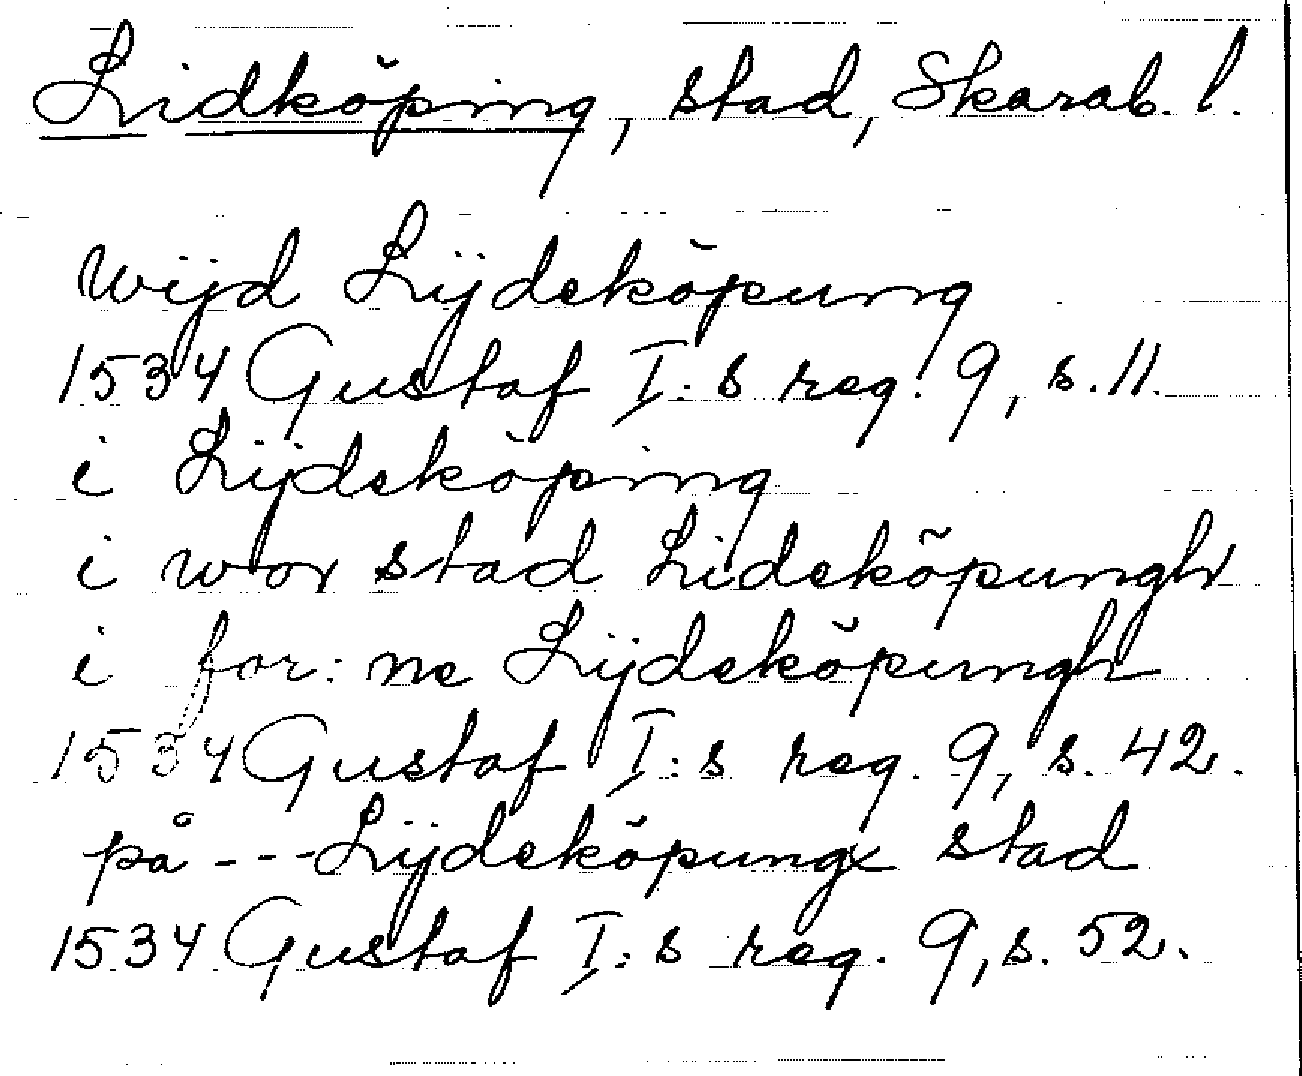 Lidköping, stad, Skarab. l.
wijd Lijdeköpung
1534 Gustaf I:s reg. 9, s. 11.
i Lijdeköping
i wor stad Lideköpungh
i for:ne Lijdeköpungh
1534 Gustaf I:s reg. 9, s. 42.
på --- Lijdeköpungx stad
1534 Gustaf I:s reg. 9, s. 52.